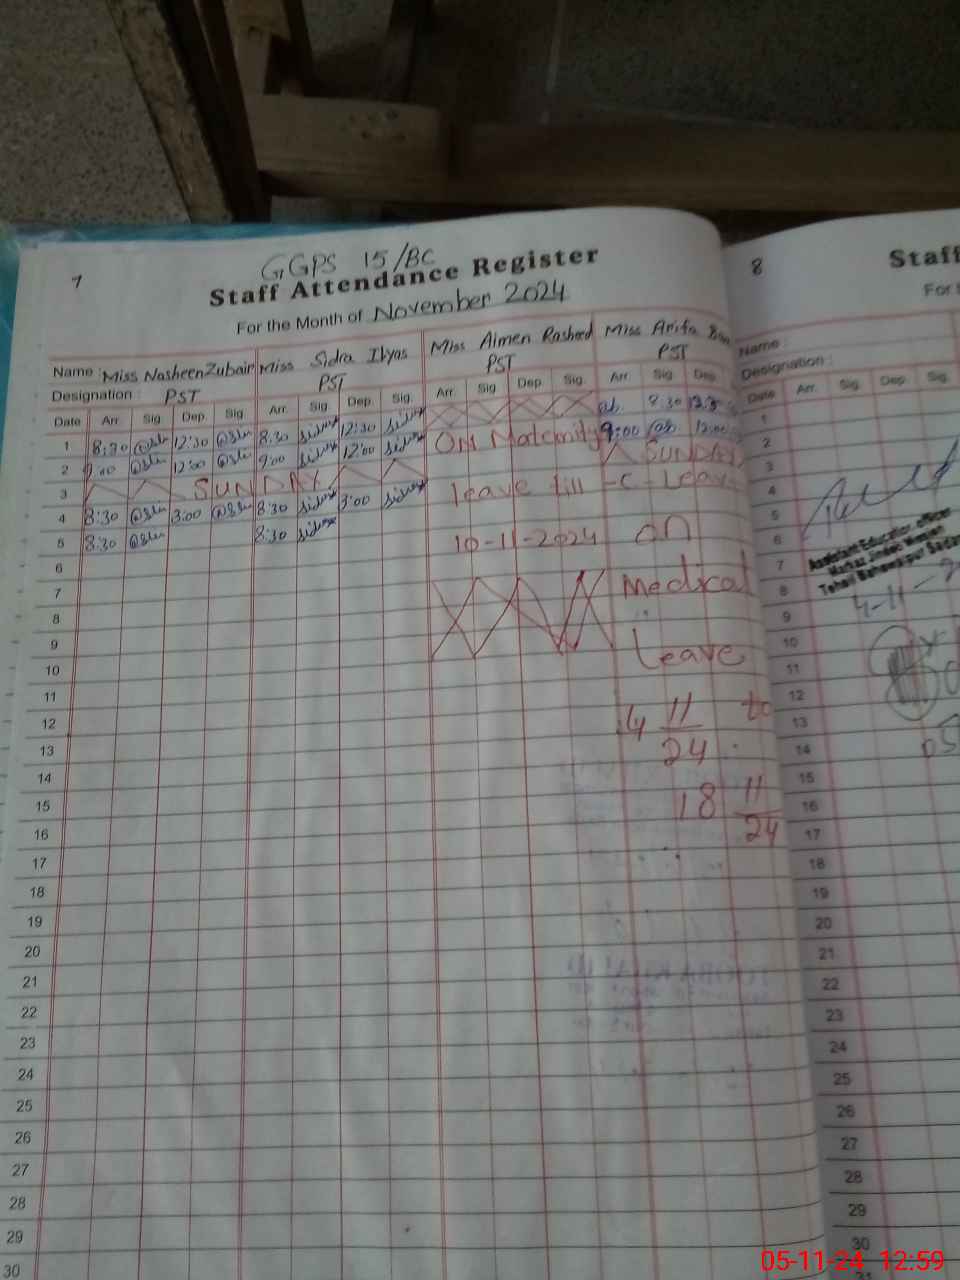 7
GGPS 15/BC
Staff Attendance Register
For the Month of November 2024
Name : Miss Nasheen Zubair Miss Sidra Ilyas Miss Aimen Rasheed Miss Arifa
Designation : PST PST PST PST
Date Arr. Sig. Dep. Sig. Arr. Sig. Dep. Sig. Arr. Sig. Dep. Sig. Arr. Sig. Dep.
1 8:30 12:30 8:30 12:30 8:30
2 9:00 12:00 9:00 12:00 On Maternity 9:00 12:00
3 SUNDAY SUNDAY
4 8:30 3:00 8:30 3:00 leave till -C- Leave
5 8:30 8:30
6 10-11-2024 on
7 Medical
8
9 Leave
10
11
12 4 11/24 to
13
14
15 18 11/24
16
17
18
19
20
21
22
23
24
25
26
27
28
29
30
8
Staff
For
Name :
Designation :
Date Arr. Sig. Dep. Sig.
1
2
3
4
5
6
Assistant Education officer
7
Tehsil Bahawalpur Sadar
8
4-11-2
9
10
11
12
13
14
15
16
17
18
19
20
21
22
23
24
25
26
27
28
29
30
31
05-11-24 12:59